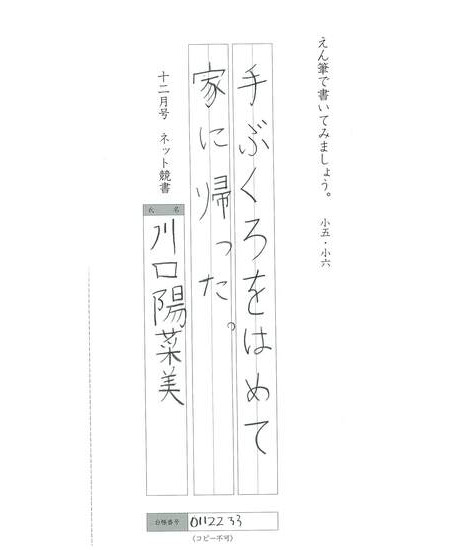 えん筆で書いてみましょう。 小五・小六
手ぶくろをはめて
家に帰った。
十二月号 ネット競書
氏名
川口陽菜美
台帳番号 0112233
(コピー不可)